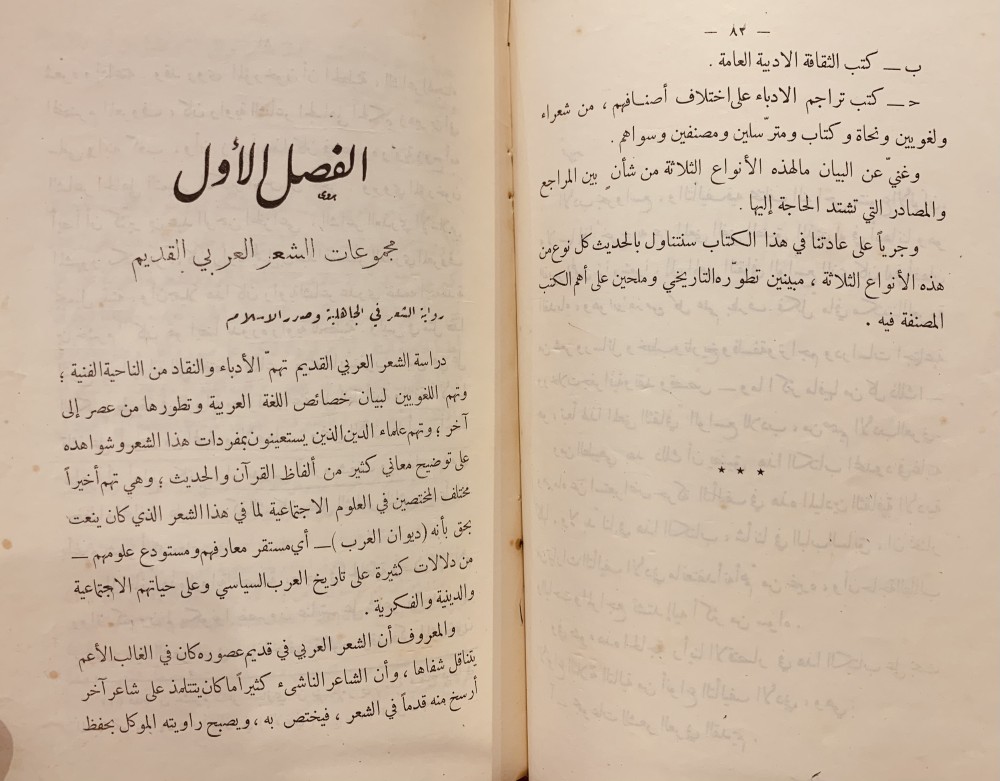 — ٨٢ —
ب — كتب الثقافة الادبية العامة .
حـ — كتب تراجم الادباء على اختلاف أصنافهم ، من شعراء
ولغويين ونحاة وكتاب ومترسّلين ومصنفين وسواهم .
وغنيّ عن البيان مالهذه الأنواع الثلاثة من شأنٍ بين المراجع
والمصادر التي تشتد الحاجة إليها .
وجرياً على عادتنا في هذا الكتاب سنتناول بالحديث كل نوع من
هذه الأنواع الثلاثة ، مبينين تطوّره التاريخي وملحين على أهم الكتب
المصنفة فيه .
* * *
الفصل الأول
مجموعات الشعر العربي القديم
رواية الشعر في الجاهلية وصدر الاسلام
دراسة الشعر العربي القديم تهمّ الأدباء والنقاد من الناحية الفنية ؛
وتهم اللغويين لبيان خصائص اللغة العربية وتطورها من عصر إلى
آخر ؛ وتهم علماء الدين الذين يستعينون بمفردات هذا الشعر وشواهده
على توضيح معاني كثير من ألفاظ القرآن والحديث ؛ وهي تهم أخيراً
مختلف المختصين في العلوم الاجتماعية لما في هذا الشعر الذي كان ينعت
بحق بأنه ( ديوان العرب ) — أي مستقر معارفهم ومستودع علومهم —
من دلالات كثيرة على تاريخ العرب السياسي وعلى حياتهم الاجتماعية
والدينية والفكرية .
والمعروف أن الشعر العربي في قديم عصوره كان في الغالب الأعم
يتناقل شفاها ، وأن الشاعر الناشىء كثيراً ما كان يتتلمذ على شاعر آخر
أرسخ منه قدماً في الشعر ، فيختص به ، ويصبح راويته الموكل بحفظ